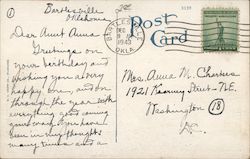 Bartlesville
Oklahoma
Dear Aunt Anna
Greetings on
your birthday and
wishing you a very
happy one, and on
through the year with
everything good coming
your way. You have
been in my thoughts
many times and a
Post
Card
BARTLESVILLE
DEC
1943
OKLA.
Mrs. Anna M. Charters
1921 Kearny Street - N.E.
Washington (18)